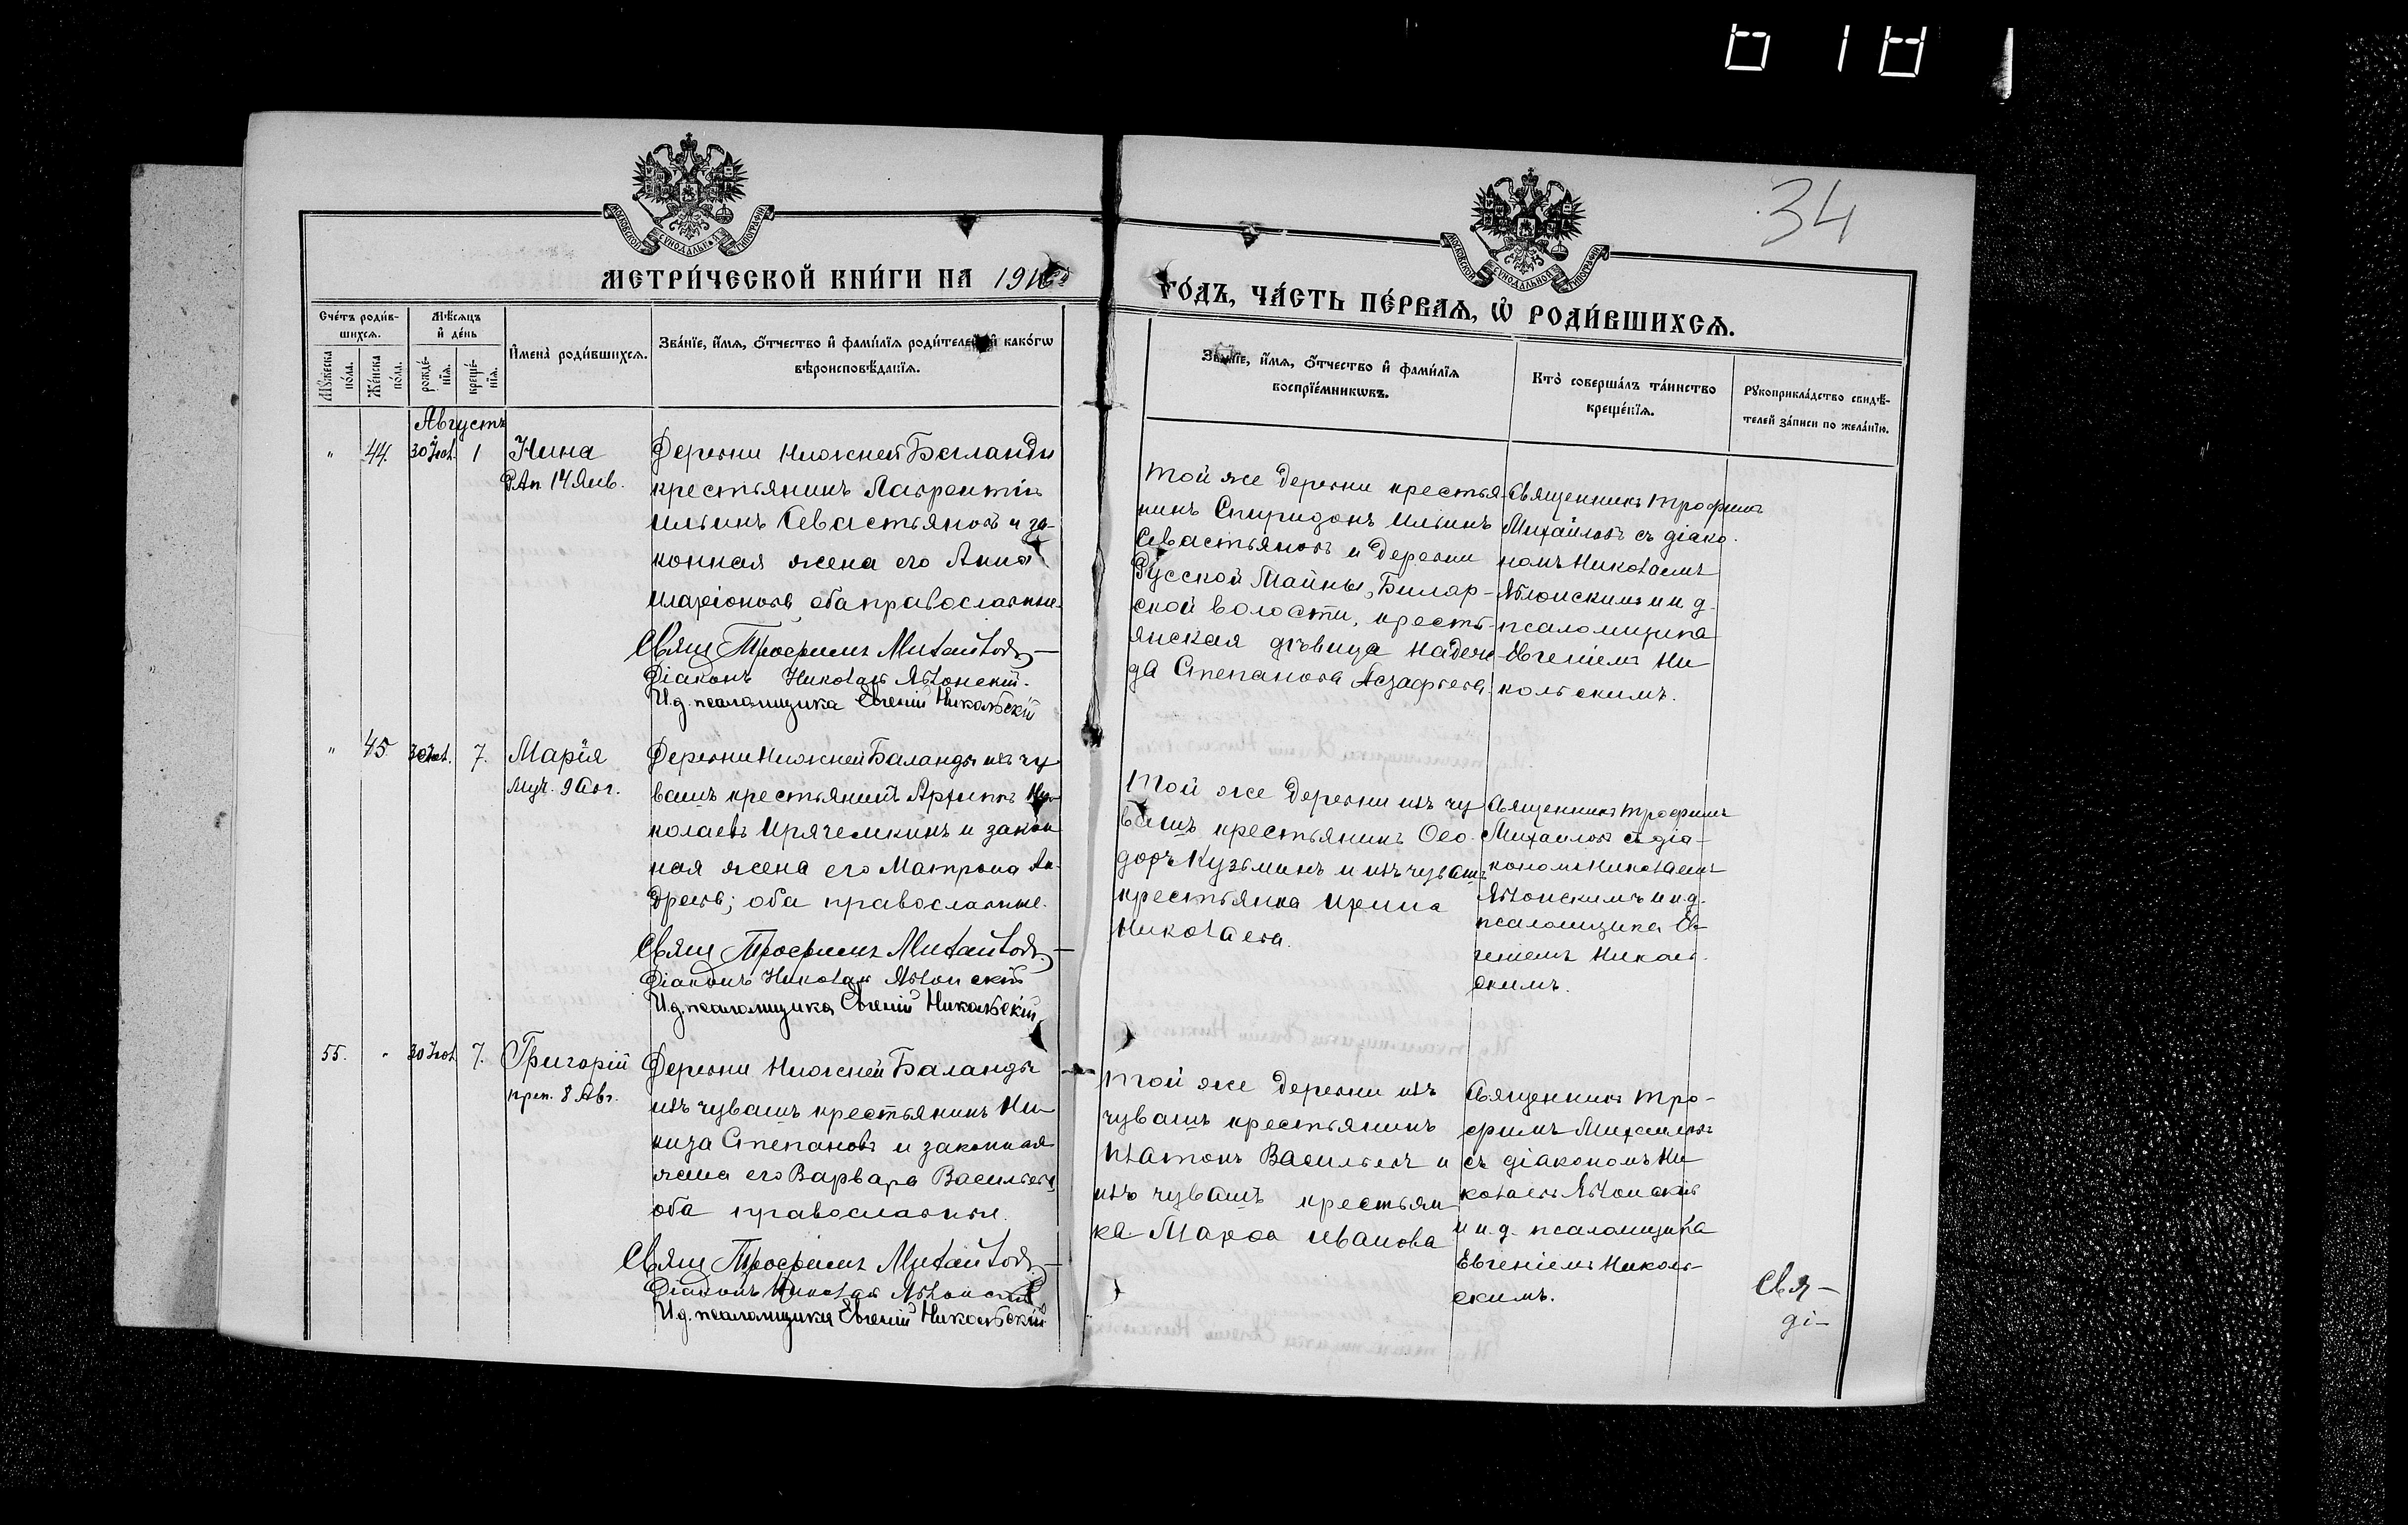 34
МОСКОВСКОЙ СѴНОДАЛЬНОЙ ТИПОГРАФІИ
МОСКОВСКОЙ СѴНОДАЛЬНОЙ ТИПОГРАФІИ
МЕТРИ́ЧЕСКОЙ КНИ́ГИ НА 191
ГО́ДЪ, ЧА́СТЬ ПЕ́РВАѦ, Ѡ҆ РОДИ́ВШИХСѦ.
Сче́тъ роди́в-
шихсѧ.
Мꙋ́жеска по́ла.
Же́нска по́ла.
Мѣ́сѧцъ и҆ де́нь
рожде́-нїѧ.
креще́-нїѧ.
И҆мена̀ роди́вшихсѧ.
Зва́нїе, и҆́мѧ, ѻ҆́тчество и҆ фами́лїѧ роди́телей, и҆ како́гѡ
вѣроисповѣ́данїѧ.
Зва́нїе, и҆́мѧ, ѻ҆́тчество и҆ фами́лїѧ
воспрїе́мникѡвъ.
Кто̀ соверша́лъ та́инство
креще́нїѧ.
Рꙋкоприкла́дство свидѣ́-
телей за́писи по жела́нїю.
Августъ
" 44. 30 Іюл. 1 Нина
Р Ап 14 Янв.
Деревни Нижней Баланды
крестьянинъ Лаврентій
Ильинъ Севастьяновъ и за-
конная жена его Анна
Иларіонова, оба православные.
Свящ Трофимъ Михайловъ
Діаконъ Николай Яблонскій.
И.д. псаломщика Евгеній Никольскій
Той же деревни крестья-
нинъ Спиридонъ Ильинъ
Севастьяновъ и деревни
Русской Майны, Биляр-
ской волости, кресть-
янская дѣвица Надеж-
да Степанова
Священникъ Трофимъ
Михайловъ съ діако-
номъ Николаемъ
Яблонскимъ и и д.
псаломщика
Евгеніемъ Ни-
кольскимъ.
" 45 30 Іюл. 7. Марія
муч. 9 Авг.
Деревни Нижней Баланды изъ чу
вашъ крестьянинъ Архипъ Ни-
колаевъ и закон
ная жена его Матрона Ан-
дреева; оба православные.
Свящ Трофимъ Михайловъ.
Діаконъ Николай Яблонскій
И.д. псаломщика Евгеній Никольскій
Той же деревни изъ чу
вашъ крестьянинъ Ѳео-
доръ Кузьминъ и изъ чувашъ
крестьянка Ирина
Николаева.
Священникъ Трофимъ
Михаиловъ съ діа-
кономъ Николаемъ
Яблонскимъ и и.д.
псаломщика Ев-
геніемъ Николь-
скимъ.
55. " 30 Іюл. 7. Григорій
преп. 8 Авг.
Деревни Нижней Баланды
изъ чувашъ крестьянинъ Ни-
киза Степановъ и законная
жена его Варвара Васильева,
оба православные.
Свящ Трофимъ Михайловъ.
Діаконъ Николай Яблонскій
И.д. псаломщика Евгеній Никольскій
Той же деревни изъ
чувашъ крестьянинъ
Платонъ Васильевъ и
изъ чувашъ крестьян
ка Марѳа Иванова
Священникъ Тро-
фимъ Михаиловъ
съ діакономъ Ни
колаемъ Яблонскимъ
и и.д. псаломщика
Евгеніемъ Николь-
скимъ.
Свя-
ді-